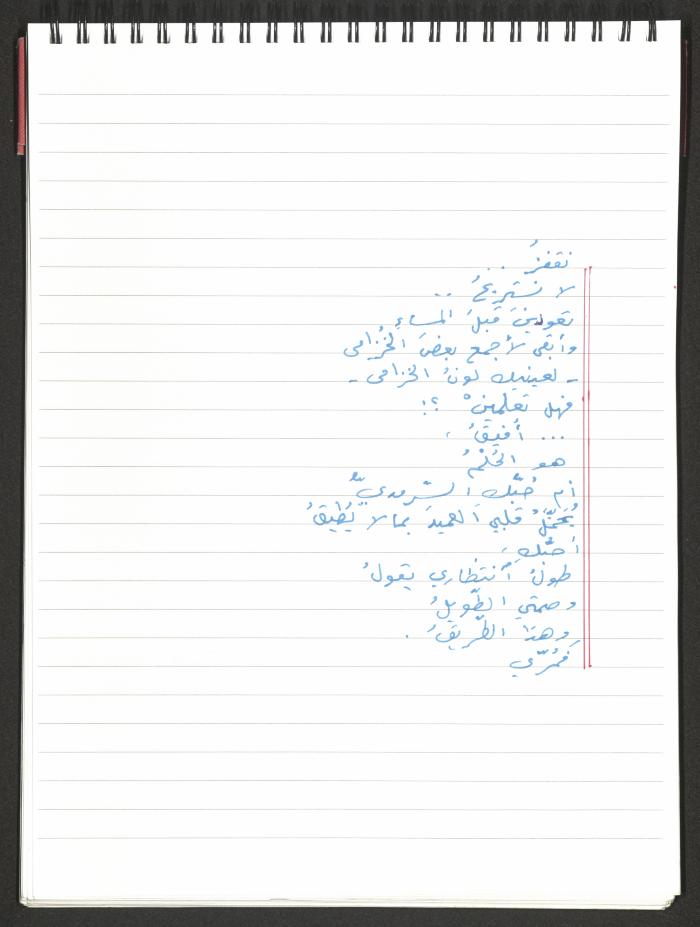 نقفزُ ..
لا نستريحُ ..
تعودينَ قبلَ المساءِ
وأبقى لأجمع بعضَ الخُزامى
- لعينيك لونُ الخزامى -
فهل تعلمينْ ؟!
... أُفيقُ ،
هو الحُلْمُ
أم حُبّك السّرمديّ
يُحَمِّلُ قلبي العميدَ بما لا يُطيقُ
أحبّكِ ،
طولُ انتظاري يقولُ
وصمتي الطّويلُ
وهذا الطّريقُ .
فَمُرّي